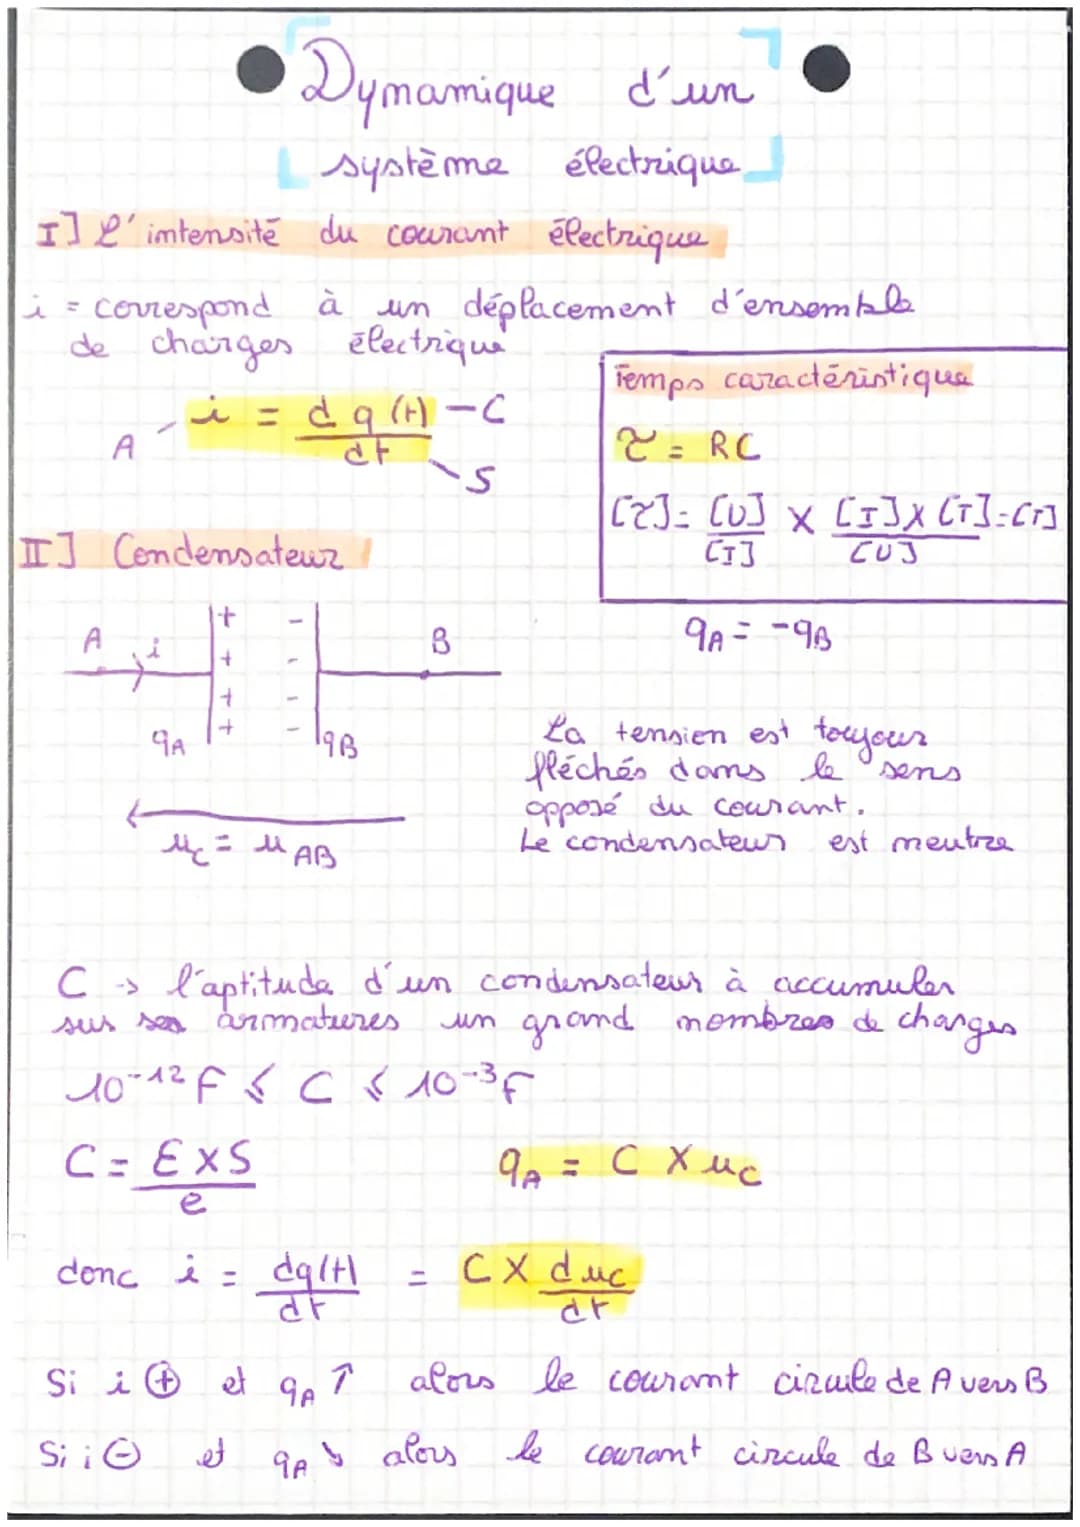 Dynamique d'un
système électrique
I] L'intensité du courant électrique
i = correspond à un déplacement d'ensemble
de charges électrique
A i = dq(t)/dt - C
S
Temps caractéristique
τ = RC
[τ] = [U]/[I] × [I]×[T]/[U] = [T]
II] Condensateur
A i + + + + - - - - B
qA qB
uc = uAB
qA = -qB
La tension est toujour
fléchés dans le sens
opposé du courant.
Le condensateur est neutre
C -> l'aptitude d'un condensateur à accumuler
sur ses armatures un grand nombres de charges
10⁻¹² F ⩽ C ⩽ 10⁻³ F
C = Ɛ×S/e
qA = C × uc
donc i = dq(t)/dt = C × duc/dt
Si i ⊕ et qA ↑ alors le courant circule de A vers B
Si i ⊖ et qA ↘ alors le courant circule de B vers A